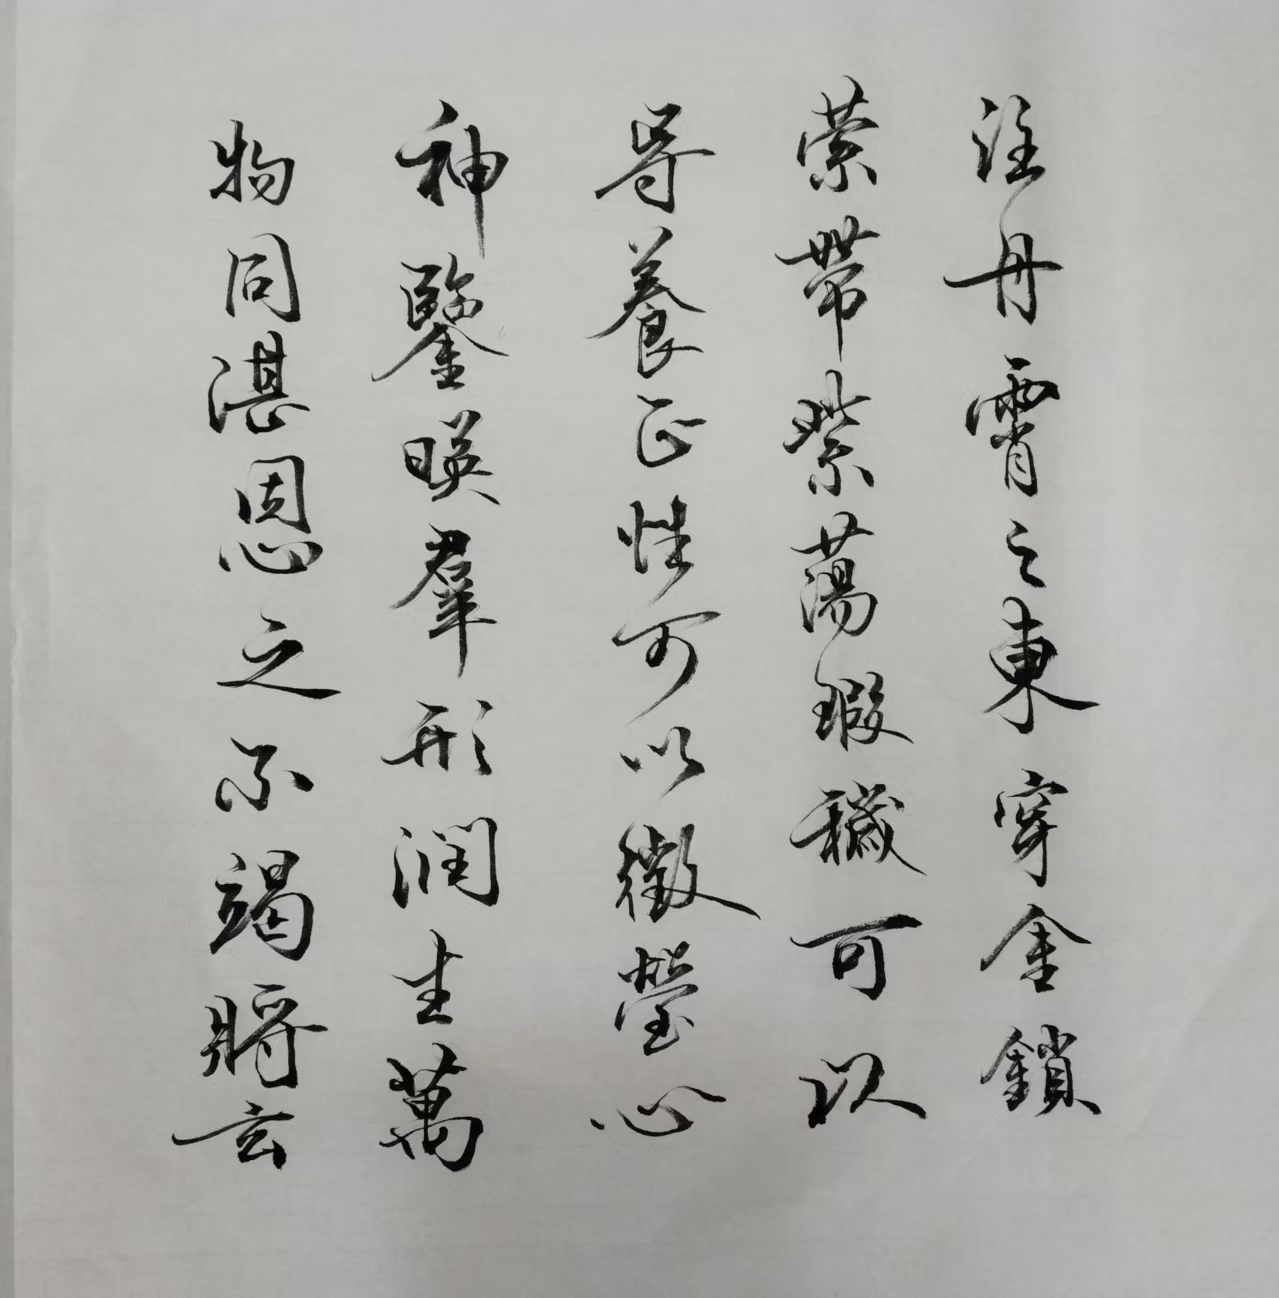 注丹霄之東穿金鎖
萦帶紫蕩瑕穢可以
导養正性可以徵瑩心
神鑒暎羣形润生萬
物同湛恩之不竭將玄